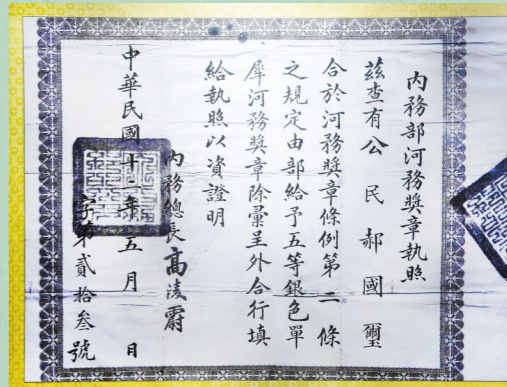 內務部河務獎章執照
茲查有公民郝國璽
合於河務獎章條例第二條
之規定由部給予五等銀色單
犀河務獎章除彙呈外合行填
給執照以資證明
內務總長高淩霨
中華民國十二年五月 日
字第貳拾叁號